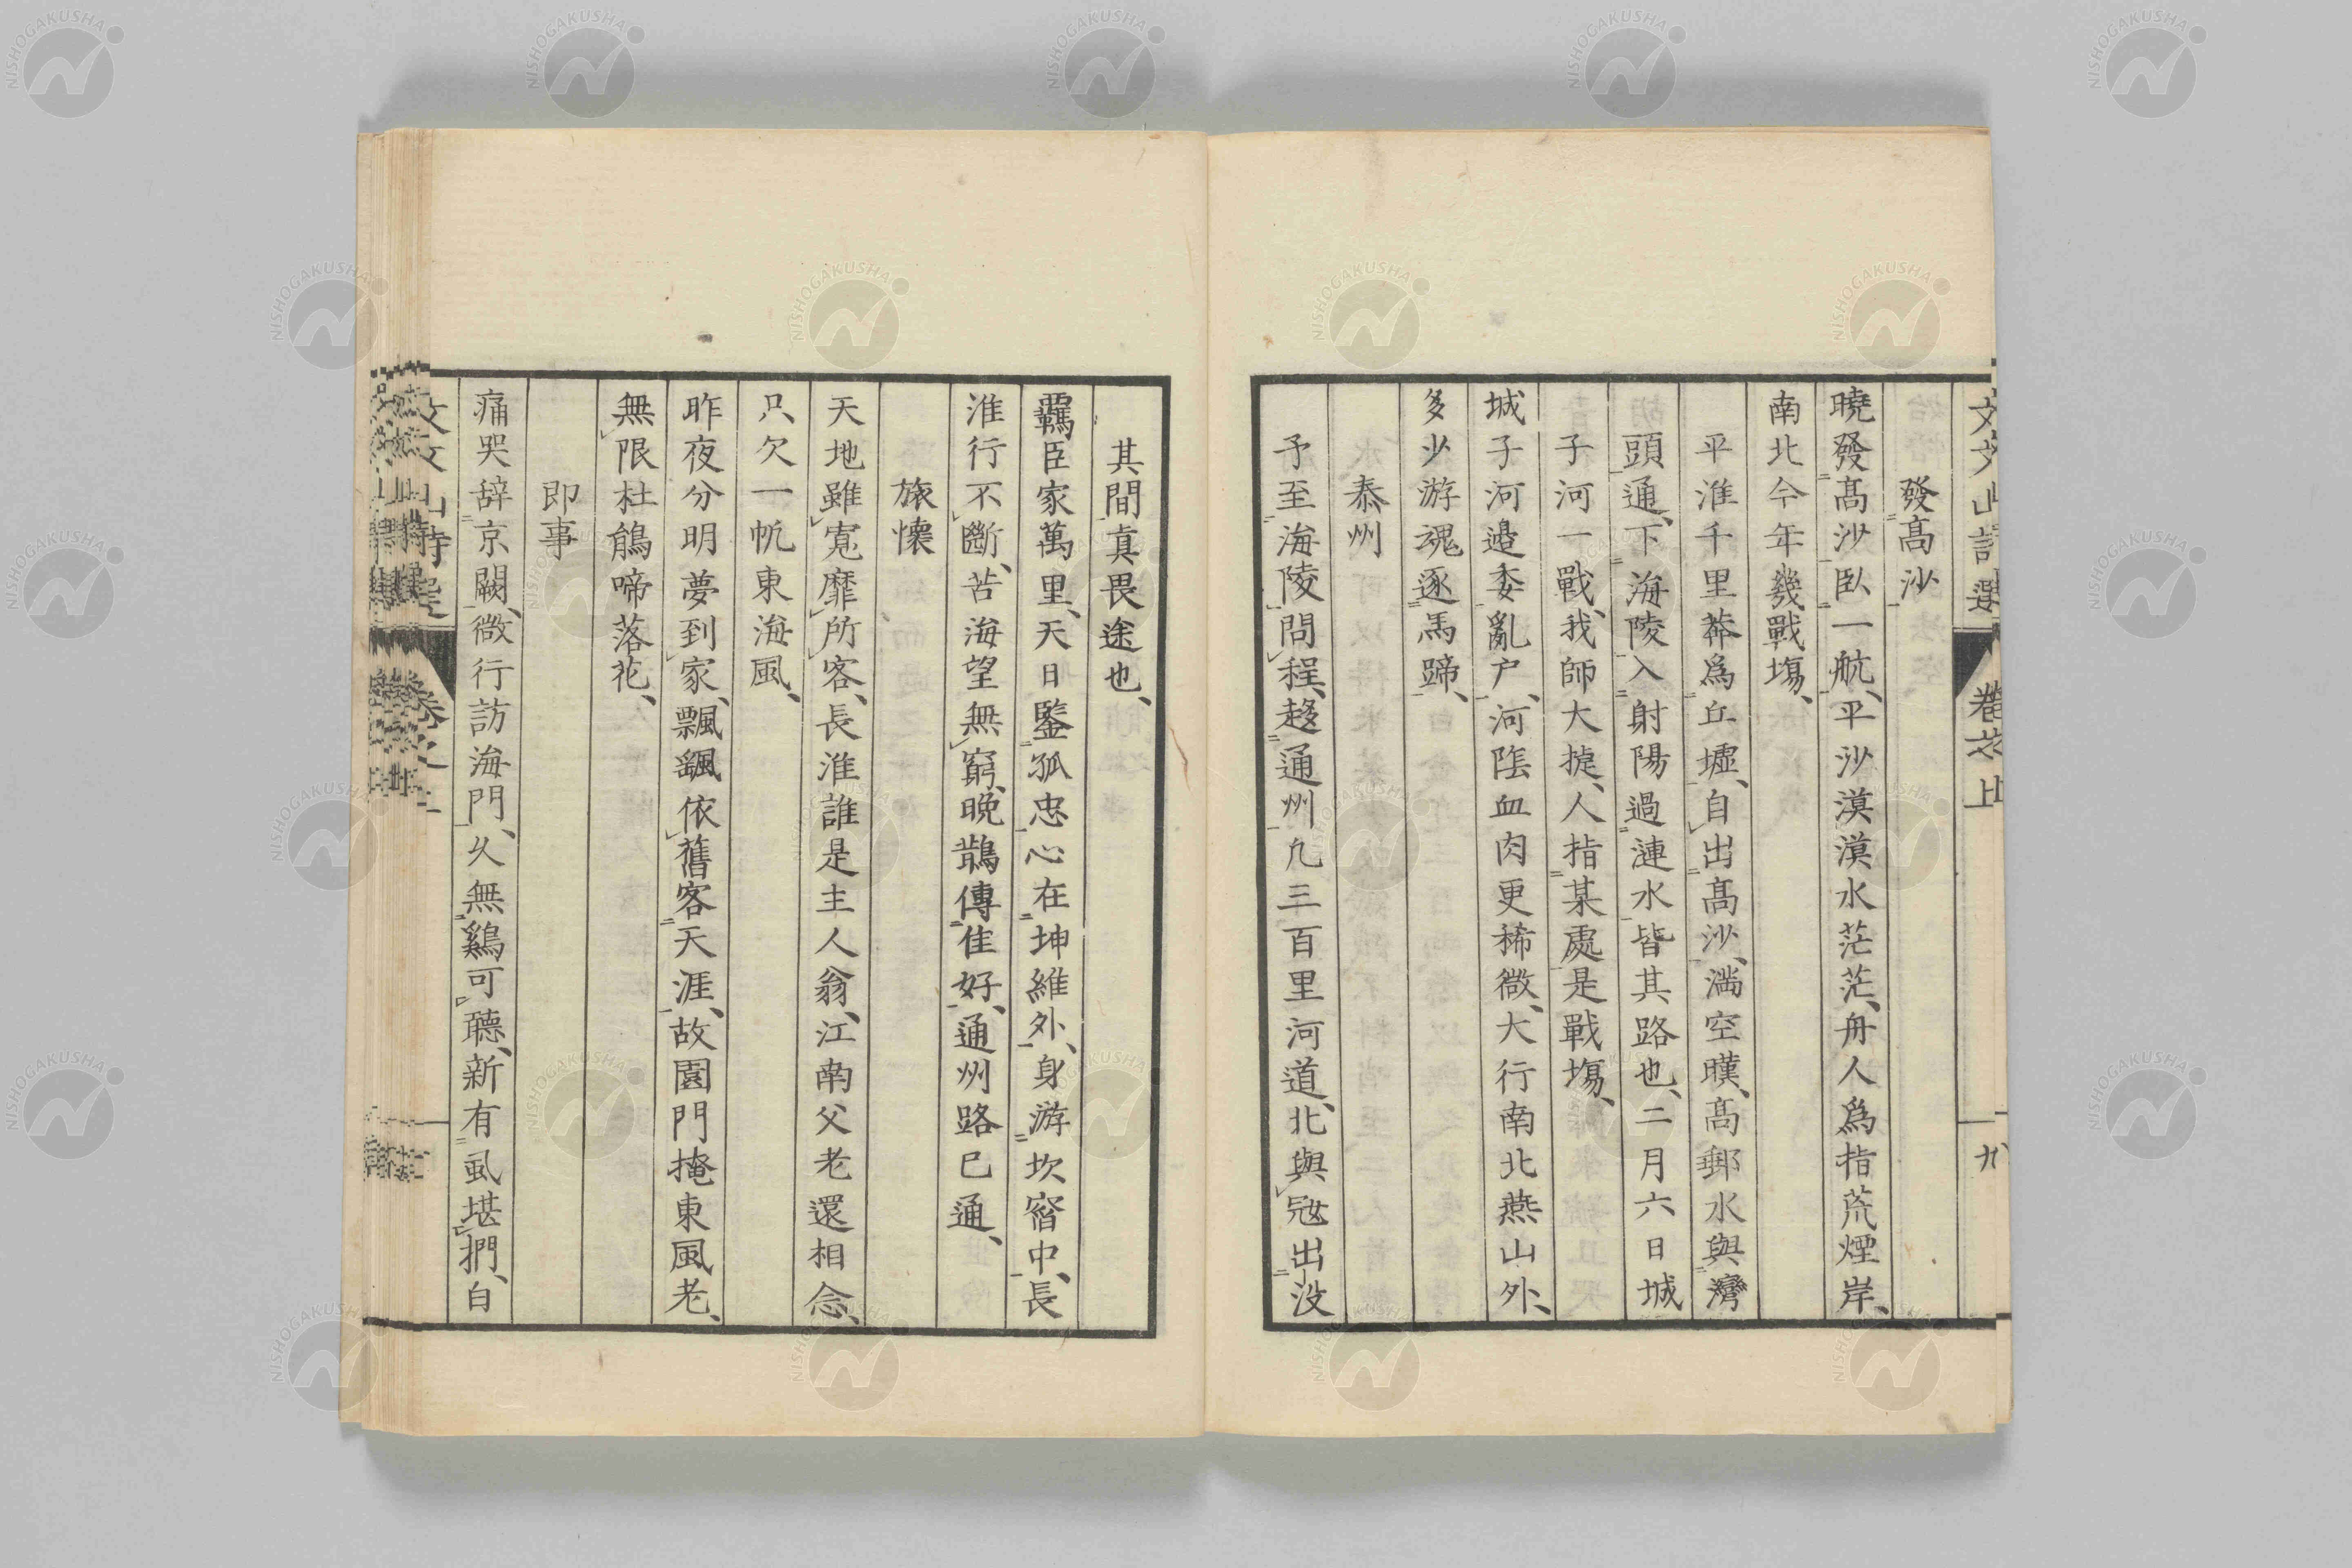 文文山詩選 卷之上 十九
發髙沙
曉發髙沙臥一航、平沙漠漠水茫茫、舟人爲指荒煙岸、
南北今年幾戰塲、
平淮千里莽爲丘墟、自出髙沙、滿空曠、髙郵水與灣
頭通、下海陵入射陽過漣水皆其路也、二月六日城
子河一戰、我師大㨗、人指某處是戰塲、
城子河邉委亂尸、河隂血肉更稀微、大行南北燕山外、
多少游魂逐馬蹄、
泰州
予至海陵問程、趍通州凢三百里河道、北與冦出没
其間真畏途也、
羈臣家萬里、天日鑒孤忠、心在坤維外、身游坎窞中、長
淮行不斷、苦海望無窮、晚鵲傳佳好、通州路已通、
旅懷
天地雖寬靡所客、長淮誰是主人翁、江南父老還相念、
只欠一帆東海風、
昨夜分明夢到家、飄颻依舊客天涯、故園門掩東風老、
無限杜鵑啼落花、
即事
痛哭辞京闕、微行訪海門、乆無鷄可聽、新有虱堪捫、白
文文山詩選 卷之上
NISHOGAKUSHA